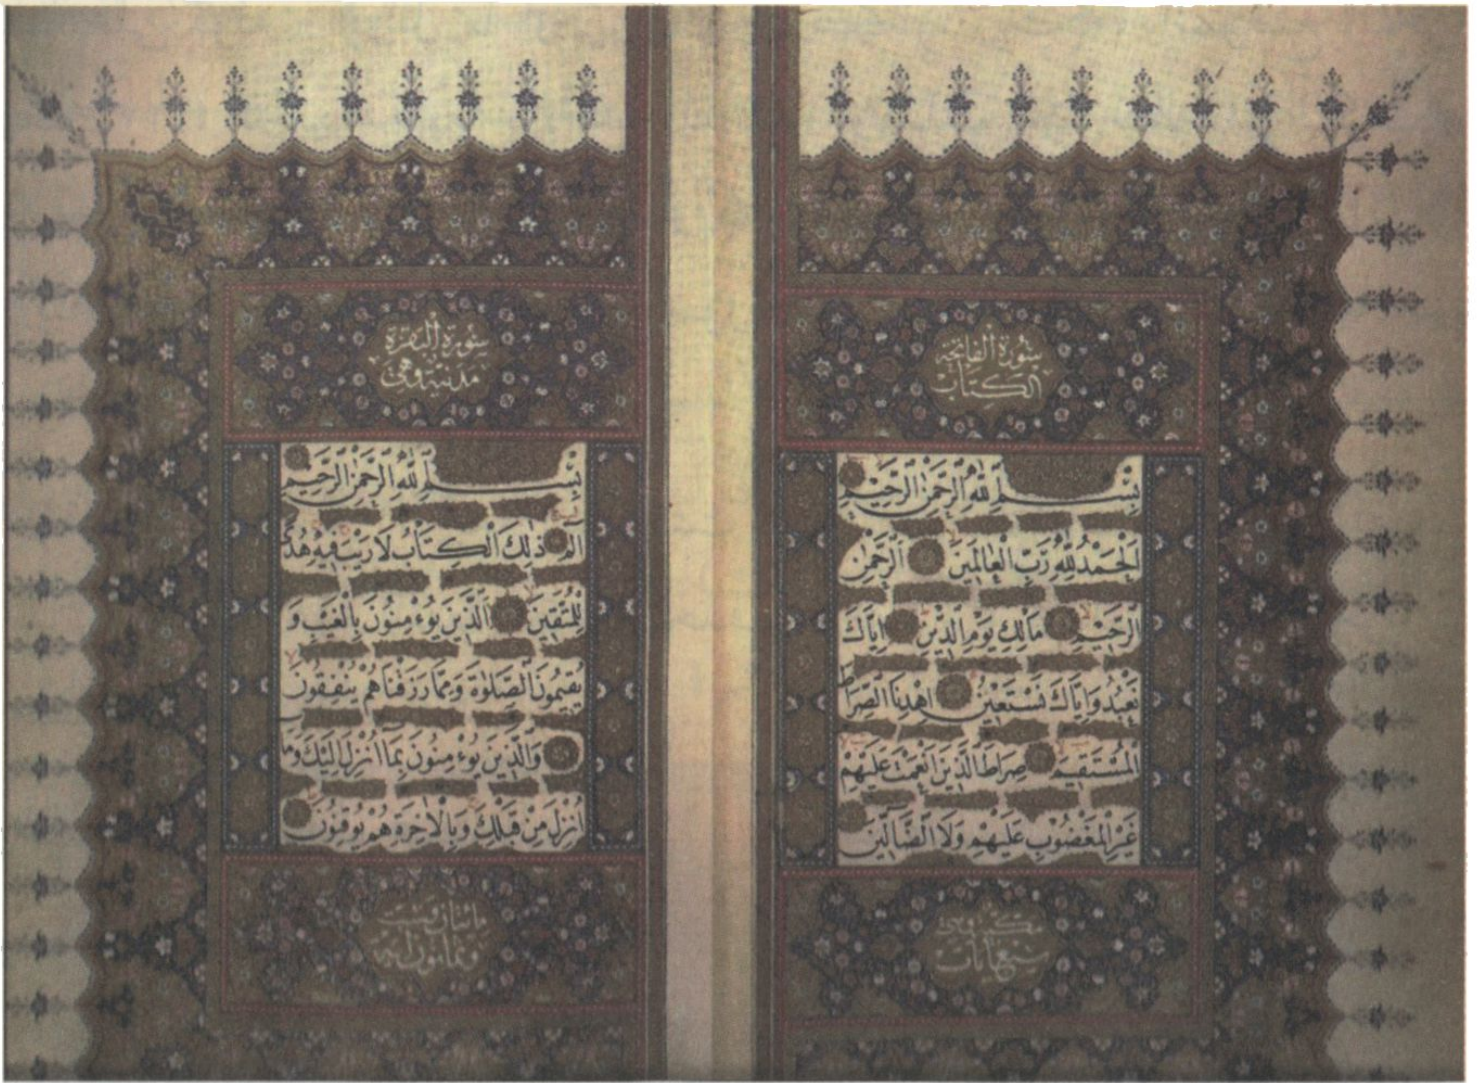 سُورَةُ الْفَاتِحَةِ
الْكِتَابِ
بِسْمِ اللهِ الرَّحْمٰنِ الرَّحِيمِ
اَلْحَمْدُ لِلّٰهِ رَبِّ الْعَالَمِينَ اَلرَّحْمٰنِ
الرَّحِيمِ مَالِكِ يَوْمِ الدِّينِ اِيَّاكَ
نَعْبُدُ وَاِيَّاكَ نَسْتَعِينُ اِهْدِنَا الصِّرَاطَ
الْمُسْتَقِيمَ صِرَاطَ الَّذِينَ اَنْعَمْتَ عَلَيْهِمْ
غَيْرِ الْمَغْضُوبِ عَلَيْهِمْ وَلَا الضَّالِّينَ
مكية وهي
سبع ايات
سُورَةُ الْبَقَرَةِ
مَدَنِيَّةٌ وَهِيَ
بِسْمِ اللهِ الرَّحْمٰنِ الرَّحِيمِ
الم ذٰلِكَ الْكِتَابُ لَا رَيْبَ فِيهِ هُدًى
لِلْمُتَّقِينَ اَلَّذِينَ يُؤْمِنُونَ بِالْغَيْبِ وَ
يُقِيمُونَ الصَّلٰوةَ وَمِمَّا رَزَقْنَاهُمْ يُنْفِقُونَ
وَالَّذِينَ يُؤْمِنُونَ بِمَا اُنْزِلَ اِلَيْكَ وَمَا
اُنْزِلَ مِنْ قَبْلِكَ وَبِالْاٰخِرَةِ هُمْ يُوقِنُونَ
مائتان وست
وثمانون اية